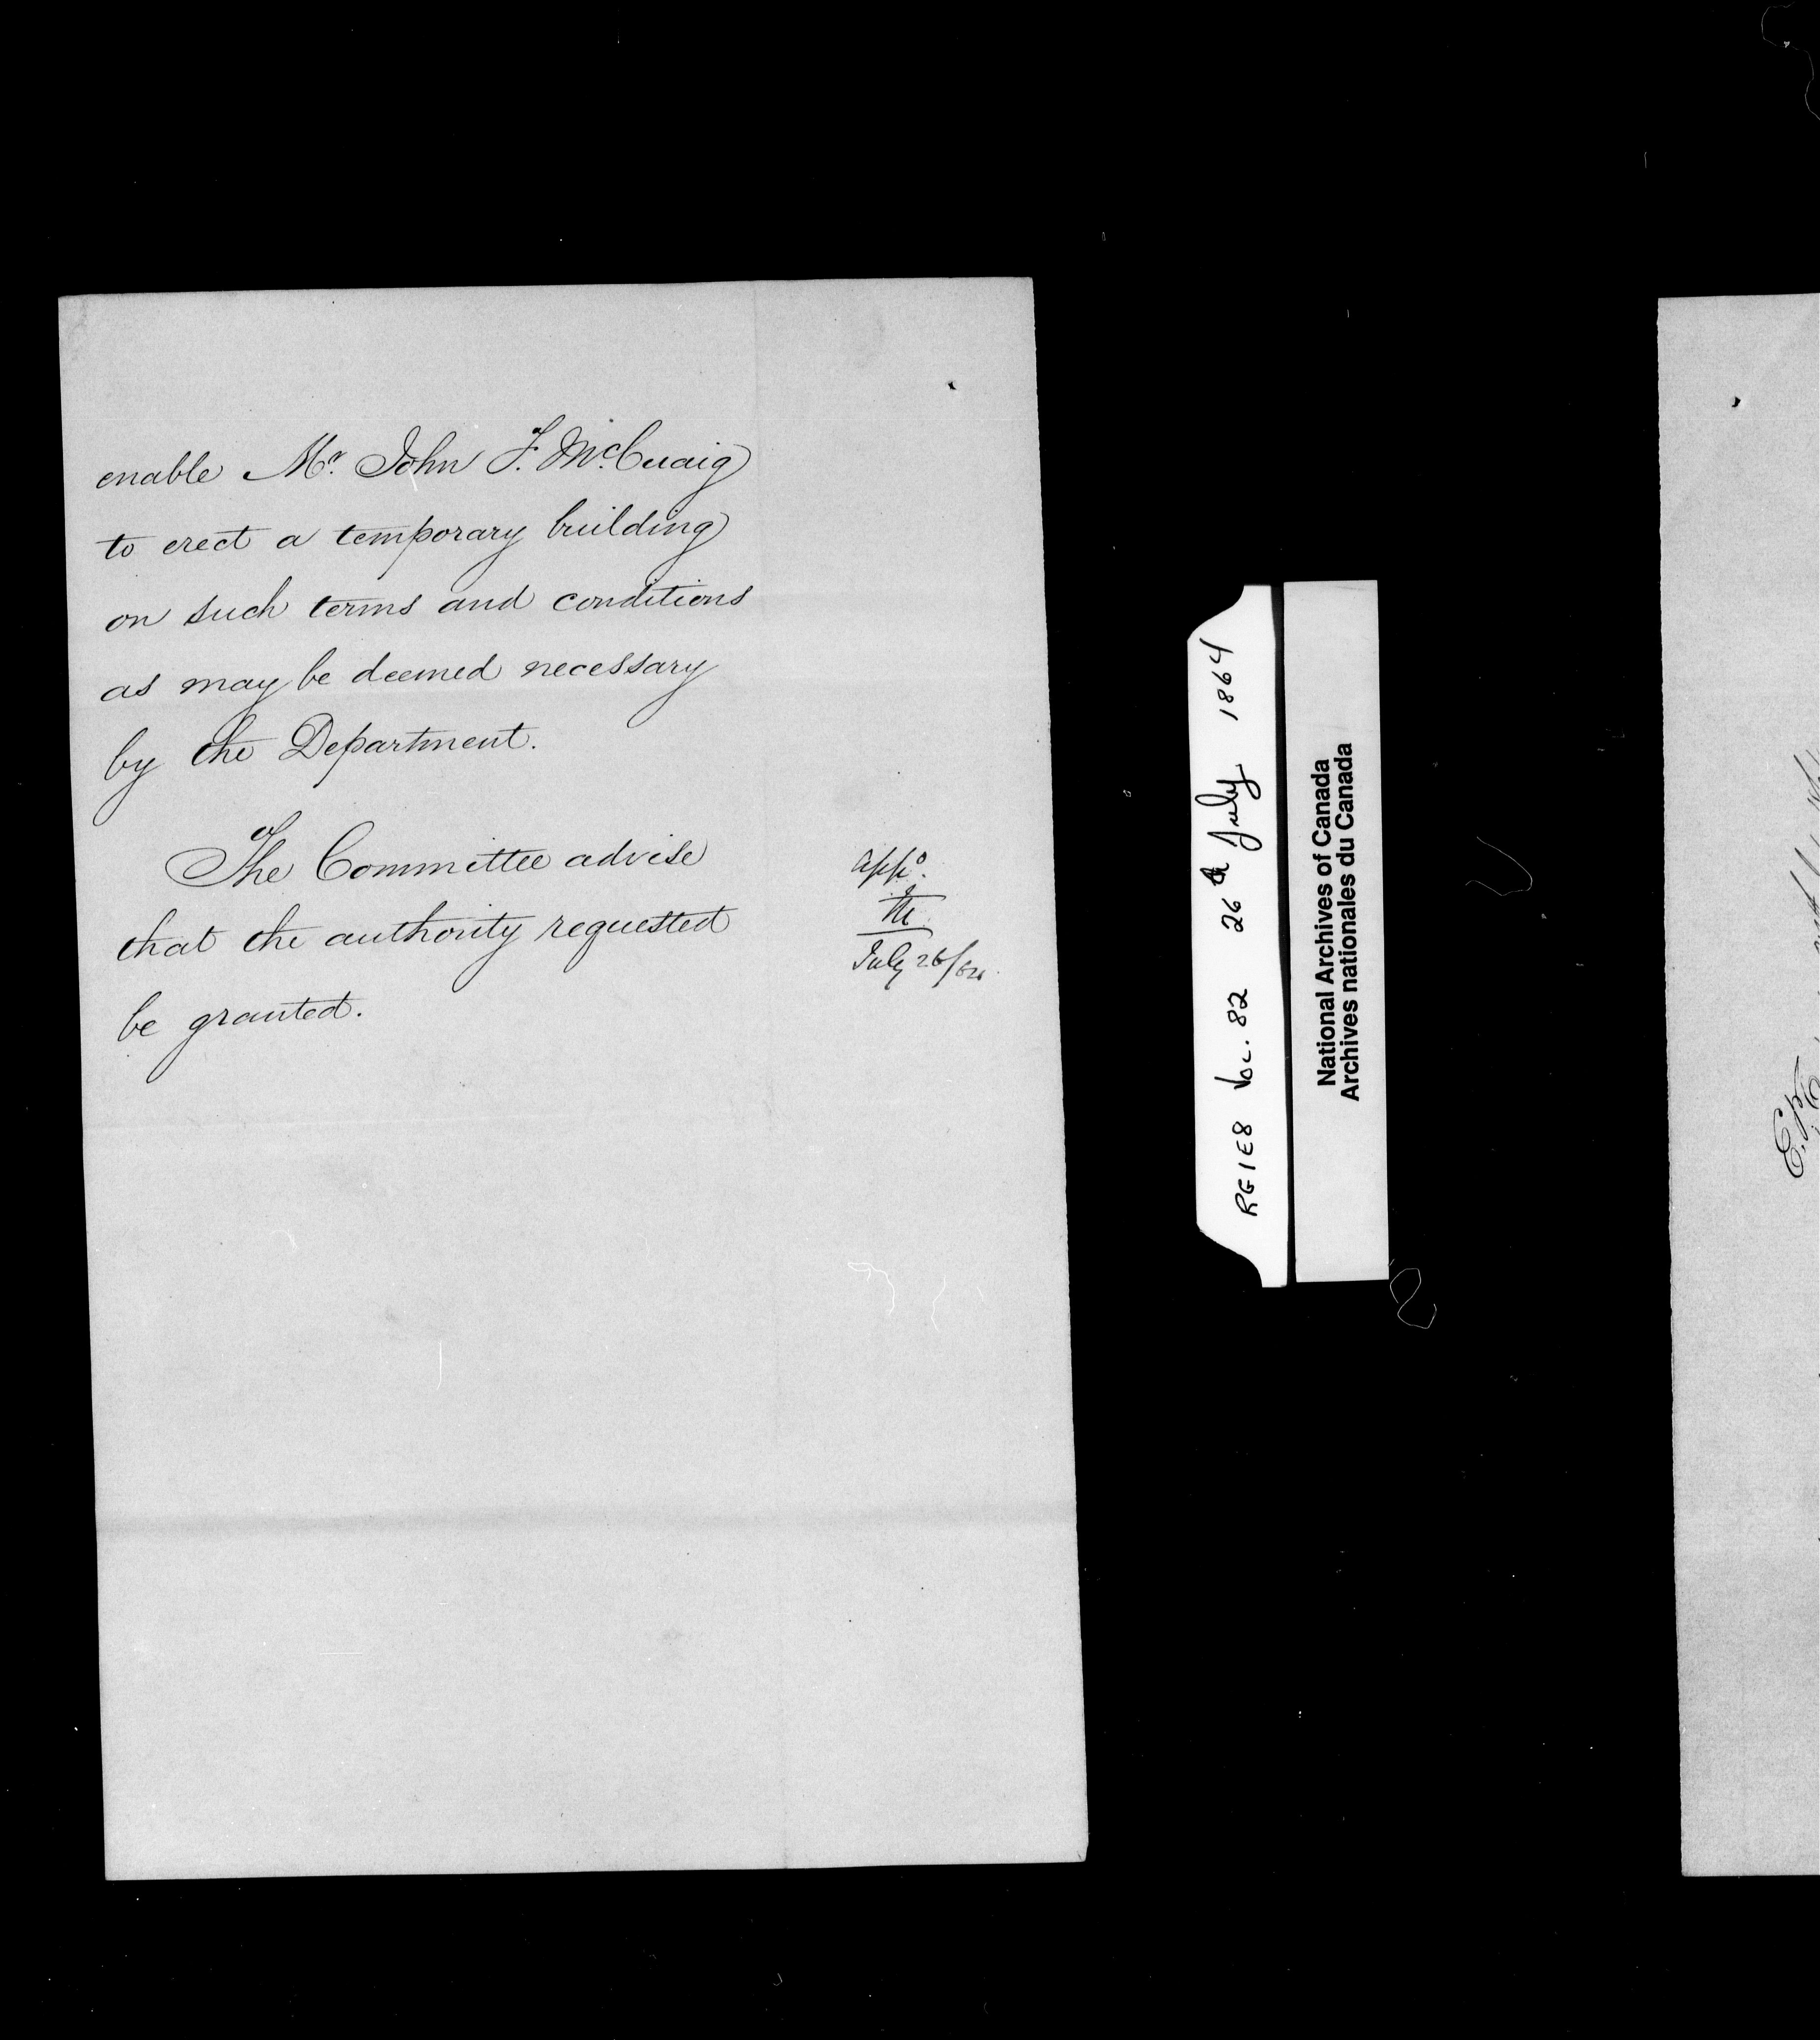 enable Mr. John F. McCuaig
to erect a temporary building
on such terms and conditions
as may be deemed necessary
by the Department.
The Committee advise
that the authority requested
be granted.
appd.
M
July 26/64.
RG1E8 VOL. 82 26 July 1864
National Archives of Canada
Archives nationales du Canada